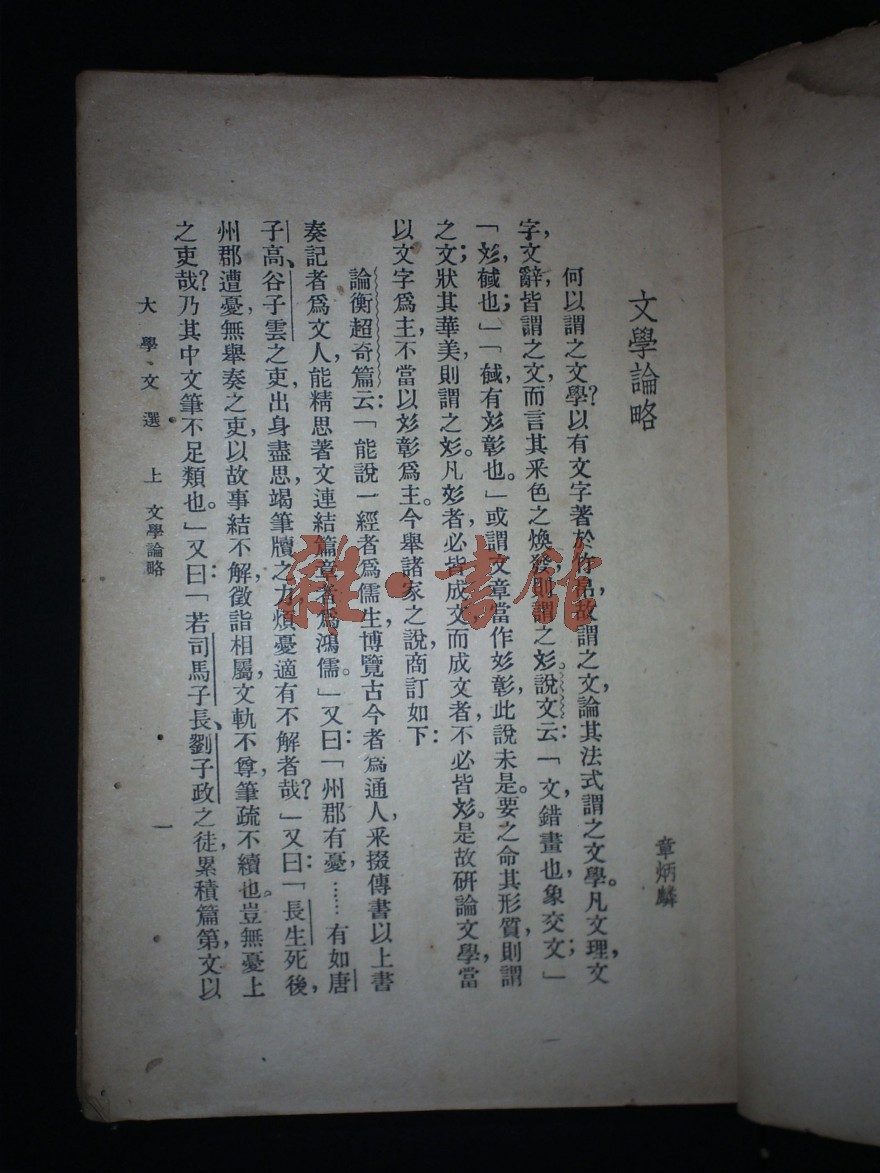 文學論略
章炳麟
何以謂之文學?以有文字著於竹帛,故謂之文,論其法式謂之文學。凡文理,文
字,文辭,皆謂之文,而言其采色之煥發,則謂之彣。說文云:「文,錯畫也,象交文」;
「彣,䎉也」;「䎉,有彣彰也。」或謂文章當作彣彰,此說未是。要之命其形質,則謂
之文;狀其華美,則謂之彣。凡彣者必皆成文,而成文者,不必皆彣。是故研論文學,當
以文字爲主,不當以彣彰爲主。今舉諸家之說,商訂如下:
論衡超奇篇云:「能說一經者爲儒生,博覽古今者爲通人,釆掇傳書以上書
奏記者爲文人,能精思著文連結篇章者爲鴻儒。」又曰:「州郡有憂,……有如唐
子高、谷子雲之吏,出身盡思,竭筆牘之力,煩憂適有不解者哉?」又曰:「長生死後,
州郡遭憂,無舉奏之吏,以故事結不解,徵詣相屬,文軌不尊,筆疏不續也。豈無憂上
之吏哉?乃其中文筆不足類也。」又曰:「若司馬子長、劉子政之徒,累積篇第,文以
大學文選 上 文學論略 一
雜·書館